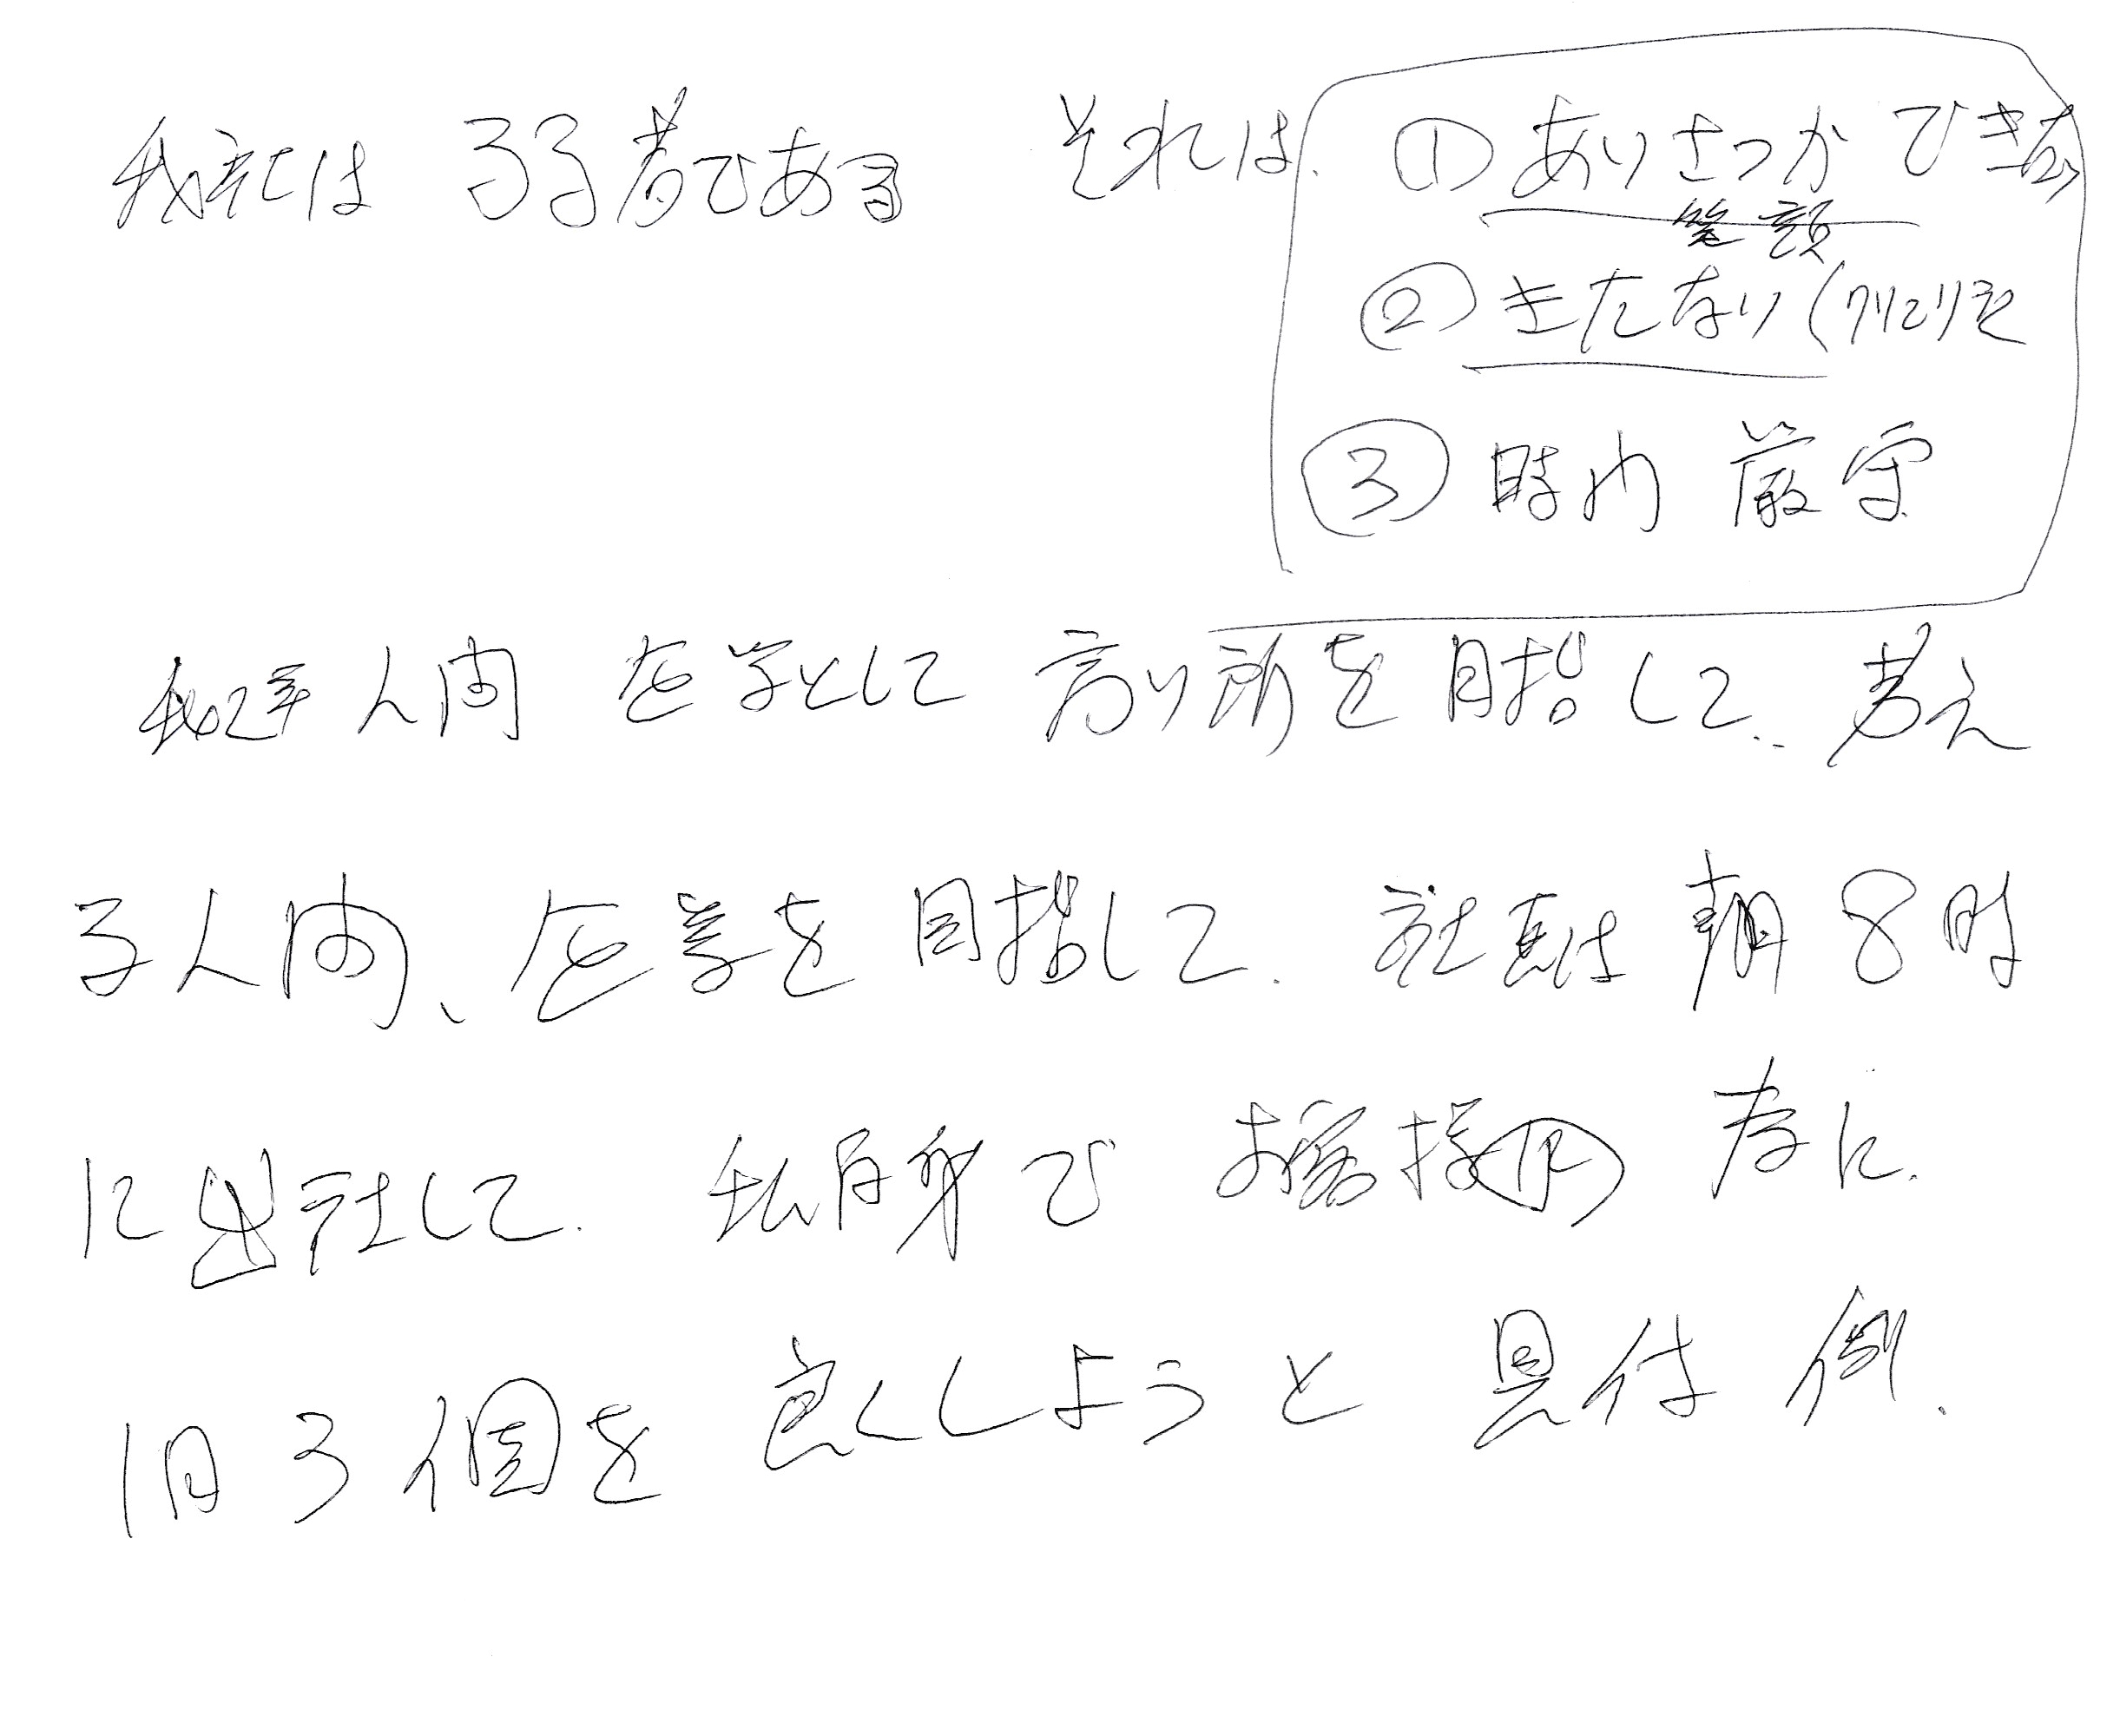 我社は 弱者である それは、① あいさつができない
笑顔
② きたない (クリンリネス
③ 時間 厳守
人間 を学として 高い所を目指して、考え
る人間、 を 目指して、社員は 朝8時
に出社して、私自身で お客様の 為に、
1日3個を 良くしようと 具体例、